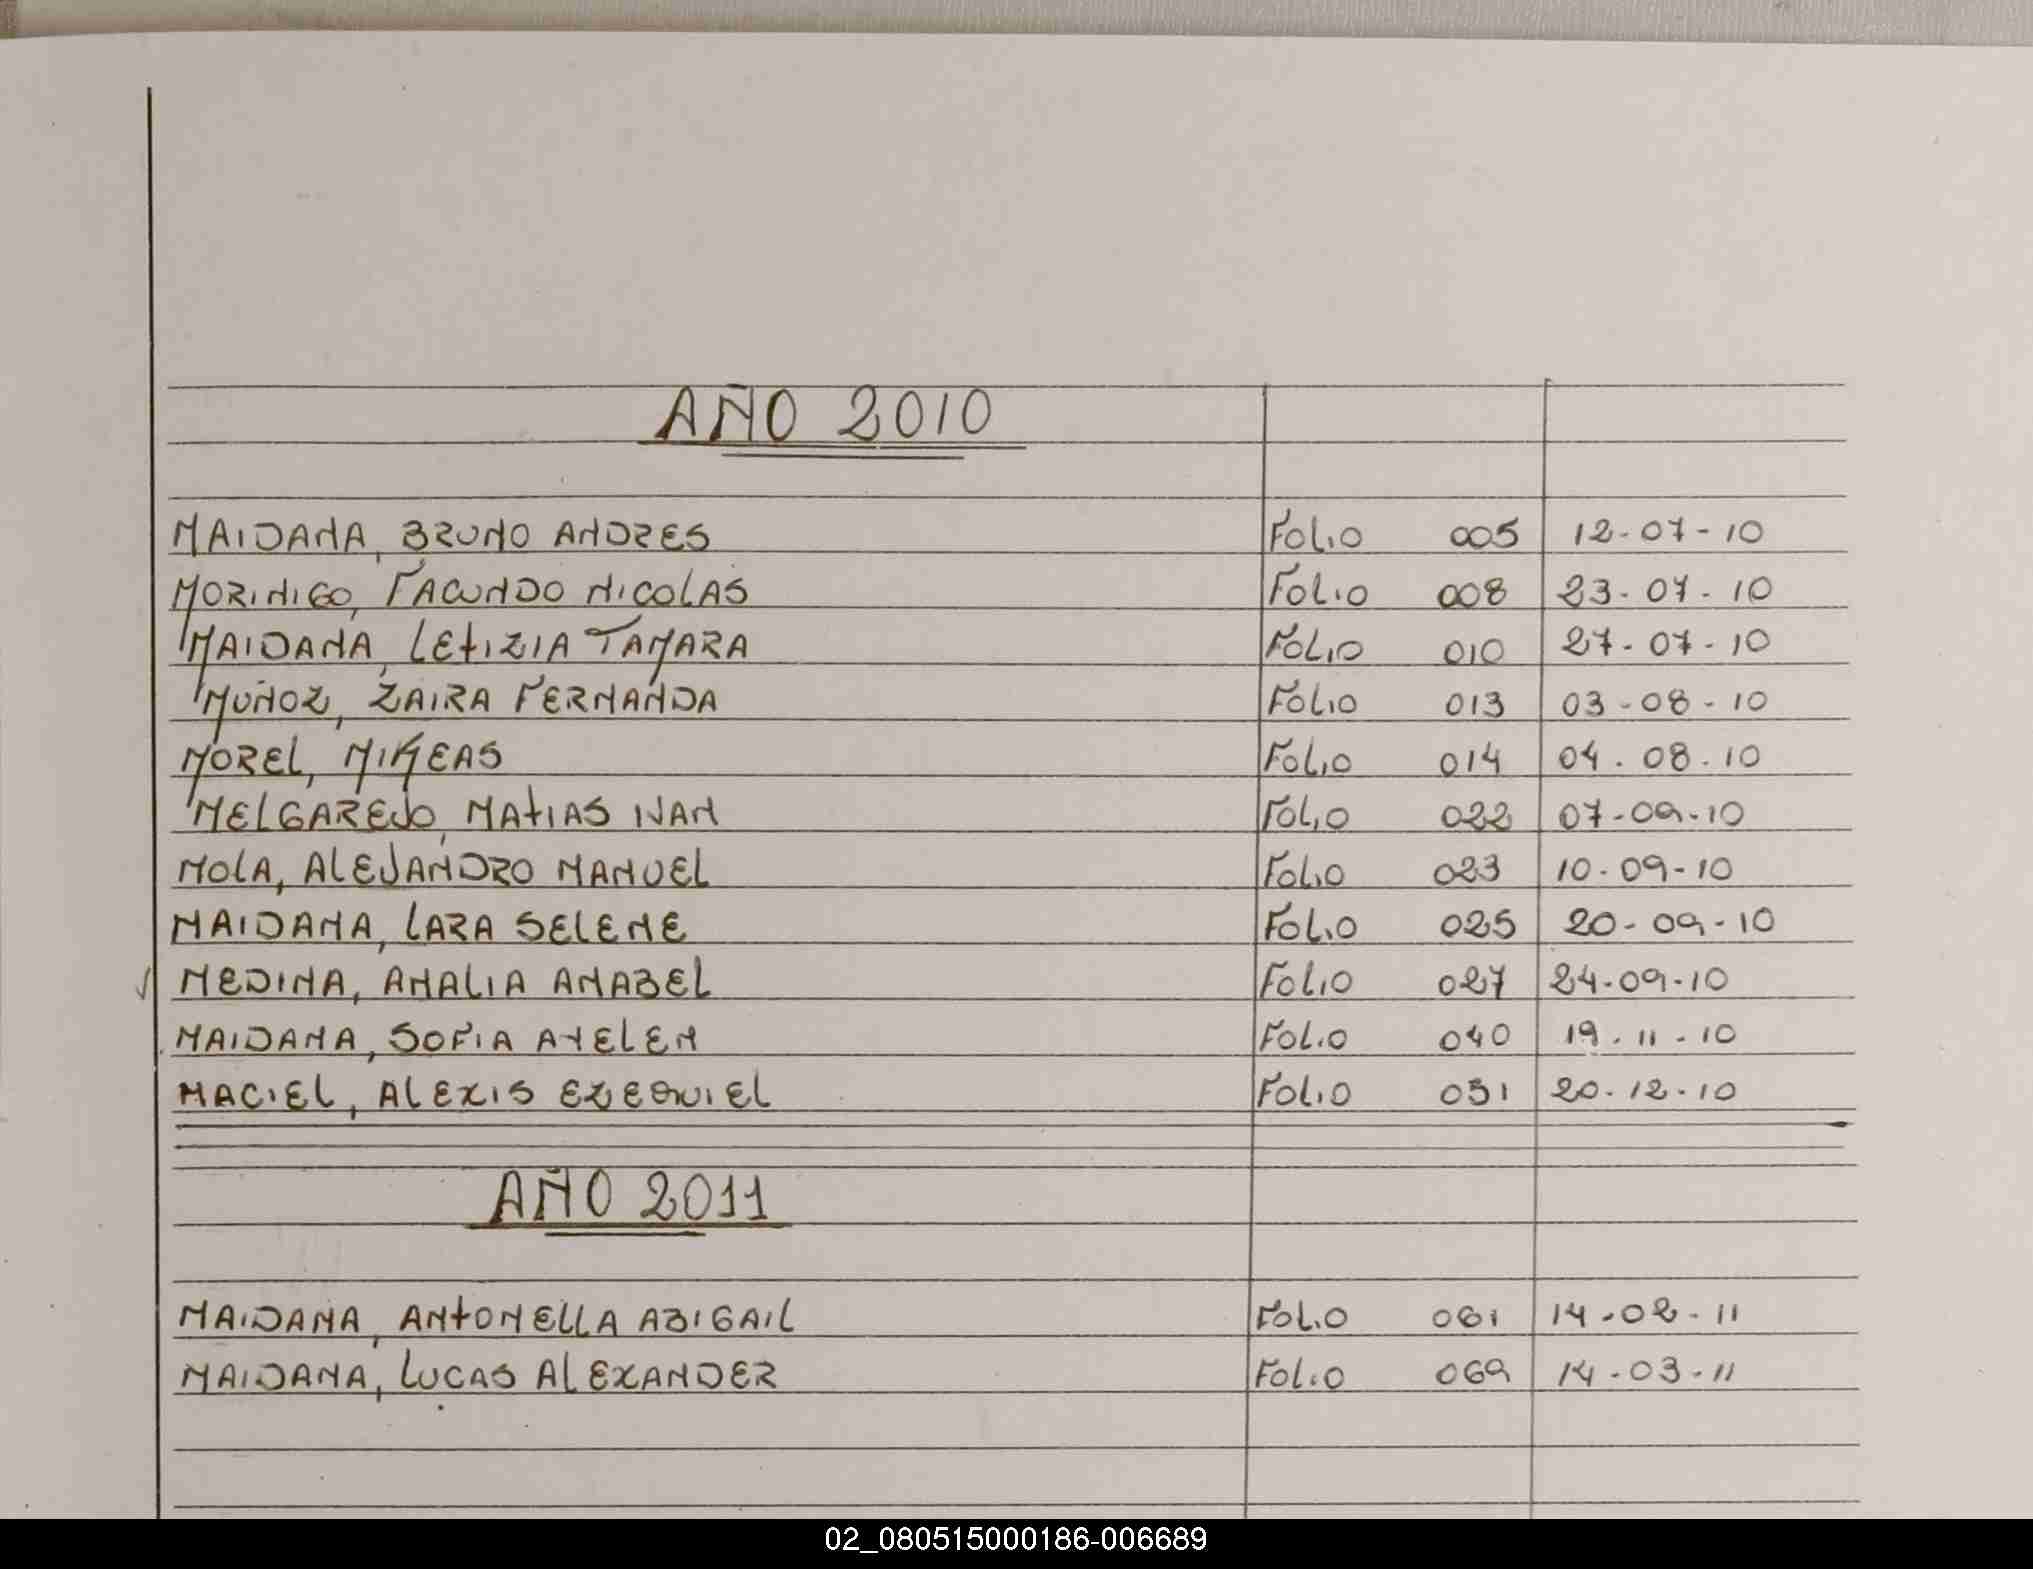 AÑO 2010
MAIDANA, BRUNO ANDRES Folio 005 12-07-10
MORINIGO, FACUNDO NICOLAS Folio 008 23-07-10
MAIDANA, LETIZIA TAMARA Folio 010 27-07-10
MUÑOZ, ZAIRA FERNANDA Folio 013 03-08-10
MOREL, MIKEAS Folio 014 04.08.10
MELGAREJO, MATIAS IVAN Folio 022 07-09-10
MOLA, ALEJANDRO MANUEL Folio 023 10-09-10
MAIDANA, LARA SELENE Folio 025 20-09-10
MEDINA, ANALIA ANABEL Folio 027 24-09-10
MAIDANA, SOFIA AYELEN Folio 040 19.11.10
MACIEL, ALEXIS EZEQUIEL Folio 051 20.12.10
AÑO 2011
MAIDANA, ANTONELLA ABIGAIL Folio 061 14-02-11
MAIDANA, LUCAS ALEXANDER Folio 069 14-03-11
02_080515000186-006689